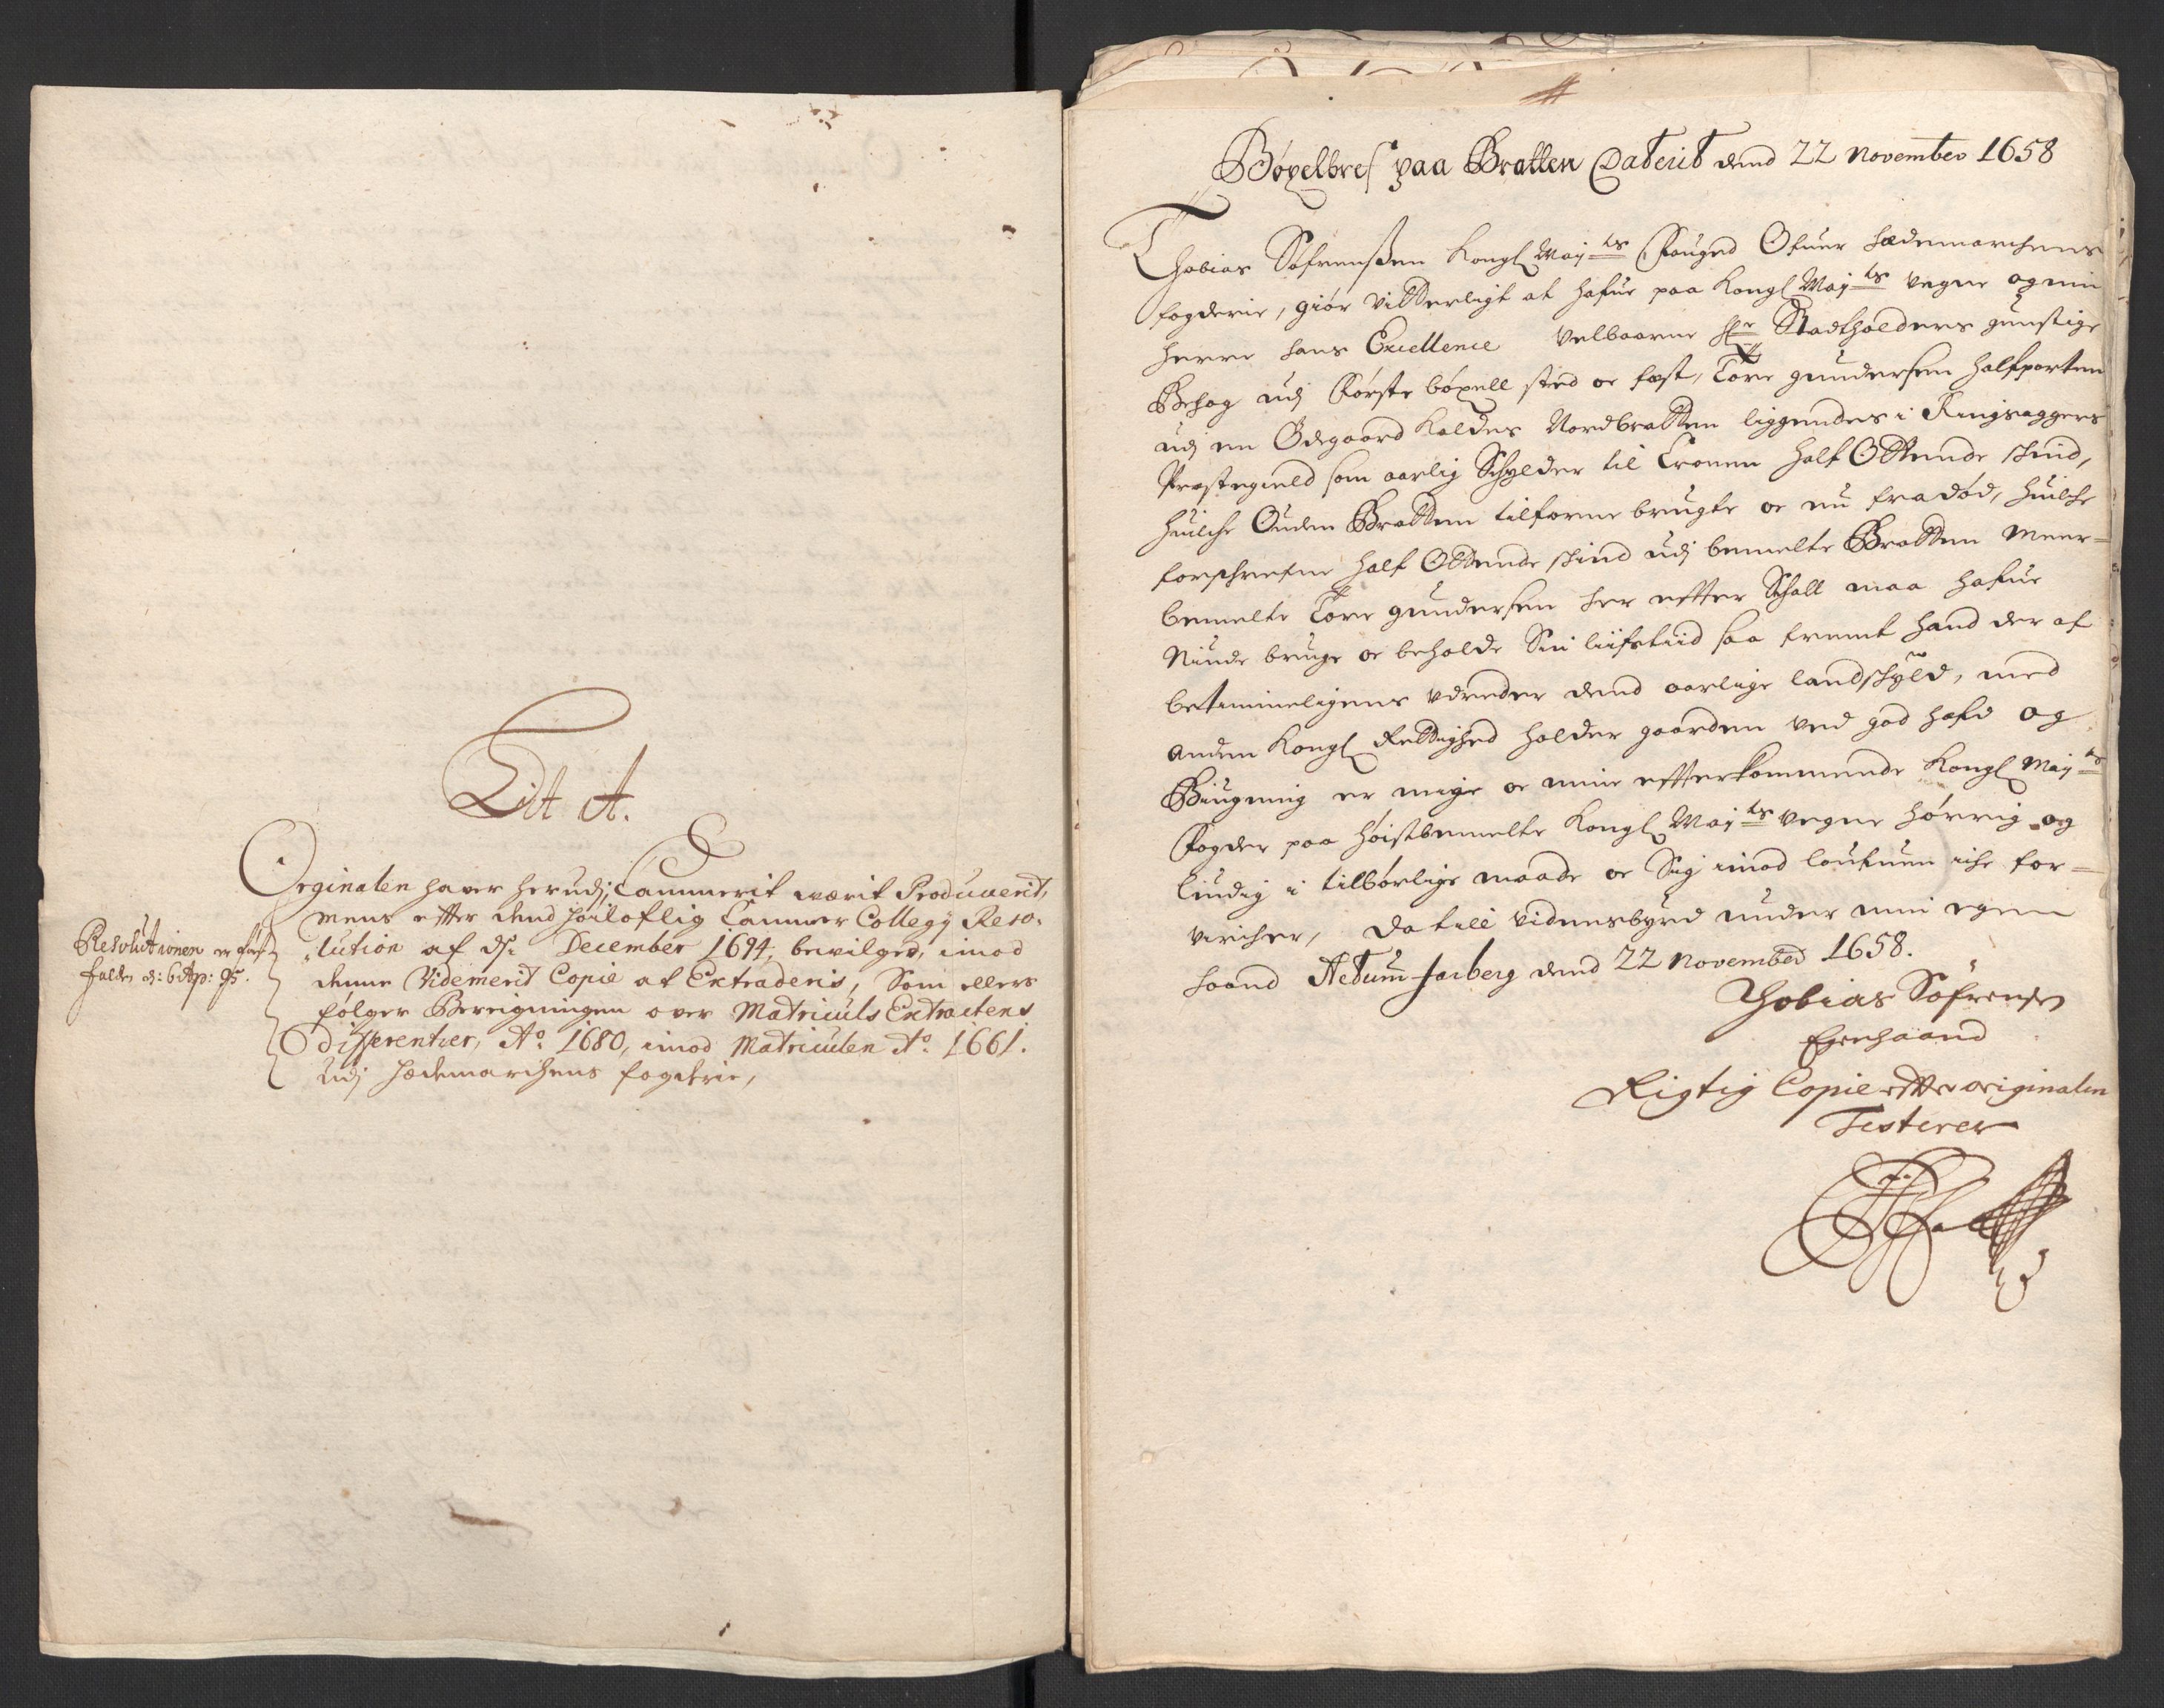 Lit A.
Orginalen haver herudj Cammerit værit Producerit,
mens effter dend høiloflig Cammer Collegij Reso-
lution af d. December 1694, bevilget, imod
denne Videmerit Copie at Extraderis, Som ellers
følger Bereigningen over Matriculs Extractens
Differentier, Ao. 1680, imod Matriculen Ao. 1661.
udj Hedemarchens fogderie,
Resolutionen er
falden d: 6 Ap: 95.
Bøxelbref paa Bratten Daterit dend 22 November 1658
Thobias Søfrensßen Kongl Maÿts Fouged Ofuer Hedemarchens
fogderie, giør vitterligt at hafue paa Kongl Maÿts vegne og min
herre hans Excellence Velbaarne Hr Stadtholders gunstige
Behag udj Første bøxell sted oc fest, Tore Gundersen halfparten
udj en Ødegaard Kaldes Nordbratten liggendes i Ringsaggers
Prestegield som aarlig Schylder til Cronen half Ottende skind,
huilche Ouden Bratten tilforne brugte oc nu fradød, huilche
forschrefne half Ottende skind udj bemelte Bratten Meer-
bemelte Tore Gundersen her effter Schall maa hafue
Niude bruge oc beholde Sin lifstiid saa fremt hand der af
betimmeligens udreder dend aarlige landskyld, med
anden Kongl Rettighed holder gaarden ved god hefd og
Biugning er mige oc mine effterkommende Kongl Maÿts
Fogder paa høistbemelte Kongl Maÿts vegne hørrig og
Liudig i tilbørlige maade oc Sig imod loufuen iche for-
viricher, Datill vidnesbyrd under min egen
haand Actum Jarberg dend 22 November 1658.
Thobias Søfrensen
Egenhaand
Rigtig Copie effter originalen
Testerer